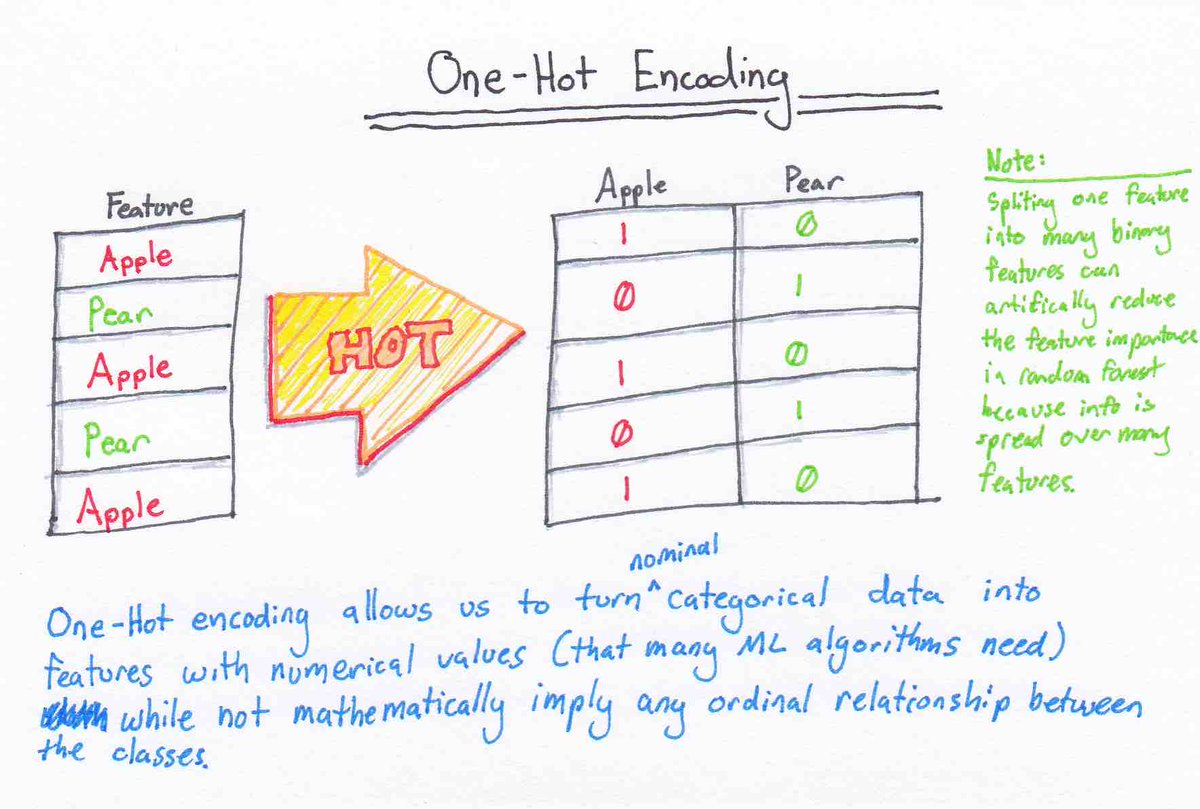 One-Hot Encoding
Feature
Apple
Pear
Apple
Pear
Apple
HOT
Apple Pear
1 0
0 1
1 0
0 1
1 0
Note:
Spliting one feature
into many binary
features can
artifically reduce
the feature importance
in random forest
because info is
spread over many
features.
nominal
One-Hot encoding allows us to turn ^ categorical data into
features with numerical values (that many ML algorithms need)
while not mathematically imply any ordinal relationship between
the classes.